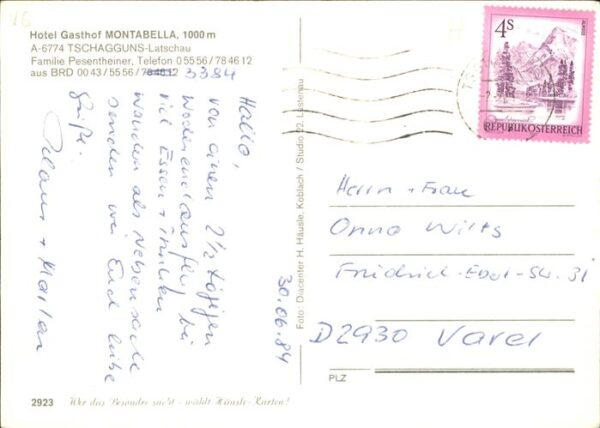 VG
Hotel Gasthof MONTABELLA, 1000 m
A-6774 TSCHAGGUNS-Latschau
Familie Pesentheiner, Telefon 0 55 56 / 78 46 12
aus BRD 00 43 / 55 56 / 78 46 12 3384
Hallo,
von einen 2½ tägigen
Wochenendausflug bei
viel Essen + trinken
Wandern als Nebensache
senden wir Euch liebe
Grüße.
Klaus + Marlen
30.06.84
Foto: Diacenter H. Häusle, Koblach / Studio 22, Lustenau
4S
ALMSEE
REPUBLIK ÖSTERREICH
Herrn + Frau
Onno Wilts
Friedrich-Ebert-Str. 31
D 2930 Varel
PLZ
2923 Wer das Besondre sucht - wählt Häusle-Karten!